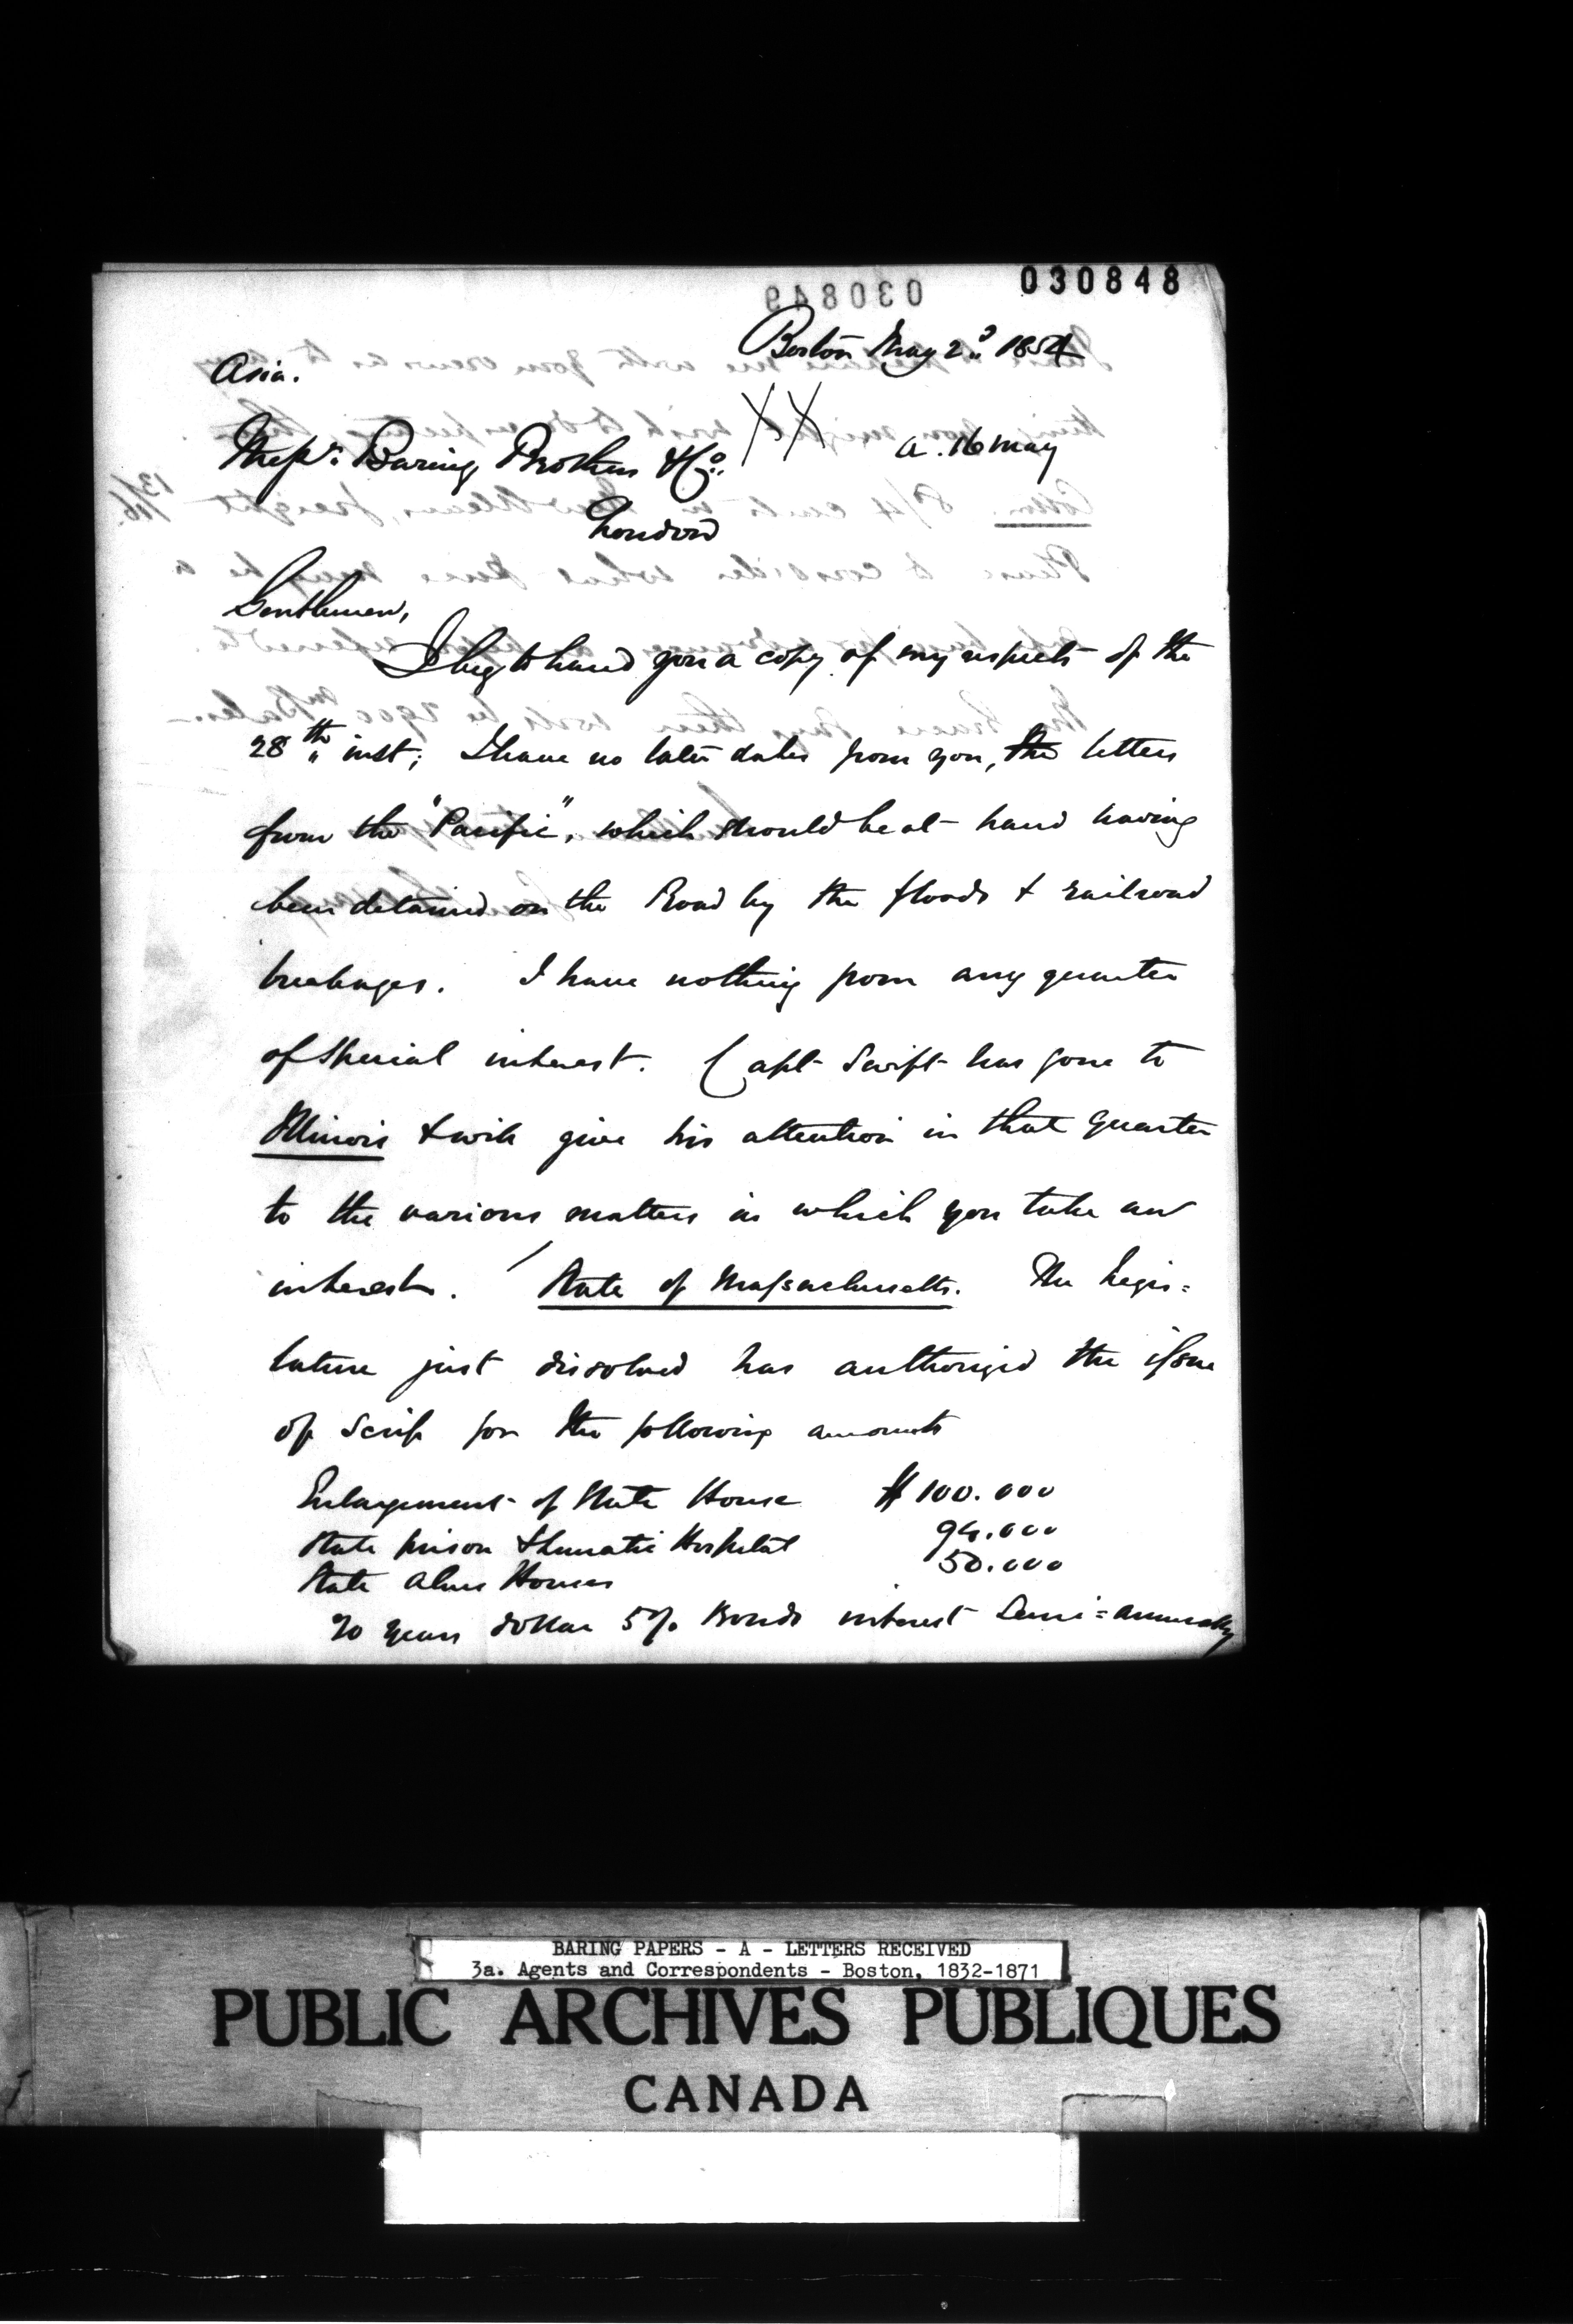 030848
030849
Boston May 2d 1854
Asia.
a. 16 May
Messrs. Baring Brothers & Co.
London
Gentlemen,
I beg to hand you a copy of my respects of the
28th inst; I have no later dates from you, the letters
from the "Pacific", which should be at hand having
been detained on the Road by the floods & railroad
breakages. I have nothing from any quarter
of special interest. Capt Swift has gone to
Illinois & will give his attention in that quarter
to the various matters in which you take an
interest. State of Massachusetts. The Legis=
lature just dissolved has authorized the issue
of Scrip for the following amounts
Enlargement of State House $100.000
State prison & Lunatic Hospital 94.000
State Alms Houses 50.000
20 years dollar 5% Bonds interest Semi=annually
BARING PAPERS - A - LETTERS RECEIVED
3a. Agents and Correspondents - Boston, 1832-1871
PUBLIC ARCHIVES PUBLIQUES
CANADA